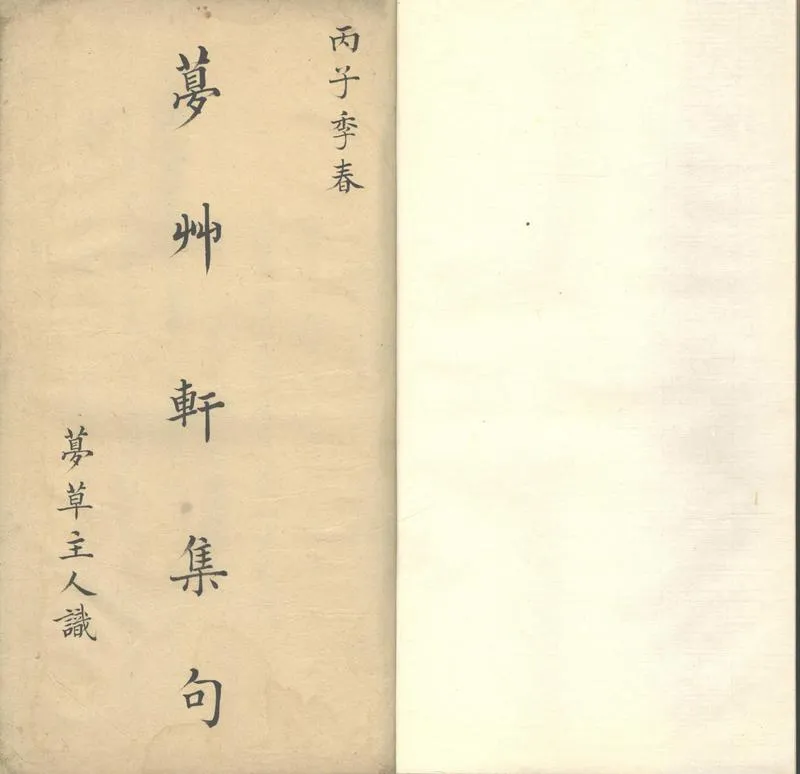 丙子季春
夢艸軒集句
夢草主人識